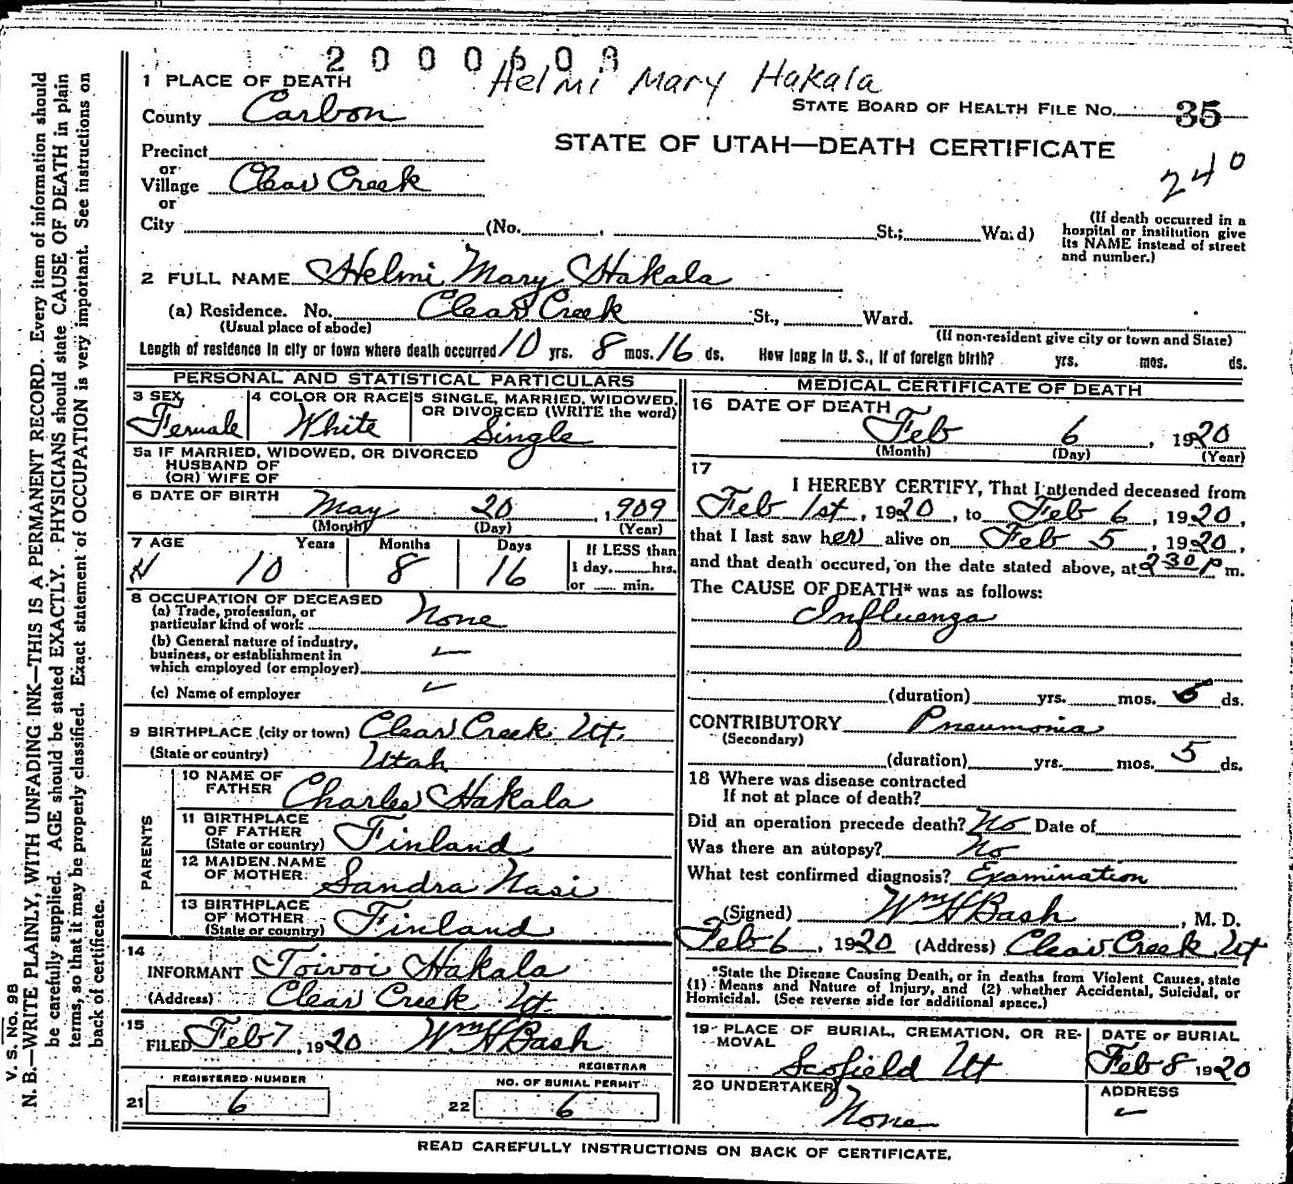 2000609
Helmi Mary Hakala
1 PLACE OF DEATH
STATE BOARD OF HEALTH FILE No. 35
County Carbon
STATE OF UTAH—DEATH CERTIFICATE
240
Precinct
or
Village Clear Creek
or
City (No. , St.; Ward)
(If death occurred in a hospital or institution give its NAME instead of street and number.)
2 FULL NAME Helmi Mary Hakala
(a) Residence. No. Clear Creek St., Ward.
(Usual place of abode) (If non-resident give city or town and State)
Length of residence in city or town where death occurred 10 yrs. 8 mos. 16 ds. How long in U. S., if of foreign birth? yrs. mos. ds.
PERSONAL AND STATISTICAL PARTICULARS
3 SEX Female
4 COLOR OR RACE White
5 SINGLE, MARRIED, WIDOWED, OR DIVORCED (WRITE the word) Single
5a IF MARRIED, WIDOWED, OR DIVORCED
HUSBAND OF
(OR) WIFE OF
6 DATE OF BIRTH May 20, 1909
(Month) (Day) (Year)
7 AGE Years Months Days If LESS than
10 8 16 1 day, hrs.
or min.
8 OCCUPATION OF DECEASED
(a) Trade, profession, or
particular kind of work None
(b) General nature of industry,
business, or establishment in
which employed (or employer)
(c) Name of employer
9 BIRTHPLACE (city or town) Clear Creek Ut.
(State or country) Utah
PARENTS
10 NAME OF
FATHER Charles Hakala
11 BIRTHPLACE
OF FATHER
(State or country) Finland
12 MAIDEN NAME
OF MOTHER Sandra Nasi
13 BIRTHPLACE
OF MOTHER
(State or country) Finland
14
INFORMANT Toivoi Hakala
(Address) Clear Creek Ut.
15
FILED Feb 7, 1920 Wm H Bash
REGISTRAR
REGISTERED NUMBER
21 6
NO. OF BURIAL PERMIT
22 6
MEDICAL CERTIFICATE OF DEATH
16 DATE OF DEATH
Feb 6, 1920
(Month) (Day) (Year)
17
I HEREBY CERTIFY, That I attended deceased from
Feb 1st, 1920, to Feb 6, 1920,
that I last saw her alive on Feb 5, 1920,
and that death occured, on the date stated above, at 2 30 P m.
The CAUSE OF DEATH* was as follows:
Influenza
(duration) yrs. mos. 5 ds.
CONTRIBUTORY Pneumonia
(Secondary)
(duration) yrs. mos. 5 ds.
18 Where was disease contracted
If not at place of death?
Did an operation precede death? No Date of
Was there an autopsy? No
What test confirmed diagnosis? Examination
(Signed) Wm H Bash, M. D.
Feb 6, 1920 (Address) Clear Creek Ut
*State the Disease Causing Death, or in deaths from Violent Causes, state
(1) Means and Nature of Injury, and (2) whether Accidental, Suicidal, or
Homicidal. (See reverse side for additional space.)
19 PLACE OF BURIAL, CREMATION, OR RE-
MOVAL
Scofield Ut
DATE OF BURIAL
Feb 8 1920
20 UNDERTAKER
None
ADDRESS
READ CAREFULLY INSTRUCTIONS ON BACK OF CERTIFICATE.
V. S. No. 98
N. B.—WRITE PLAINLY, WITH UNFADING INK—THIS IS A PERMANENT RECORD. Every item of information should
be carefully supplied. AGE should be stated EXACTLY. PHYSICIANS should state CAUSE OF DEATH in plain
terms, so that it may be properly classified. Exact statement of OCCUPATION is very important. See instructions on
back of certificate.